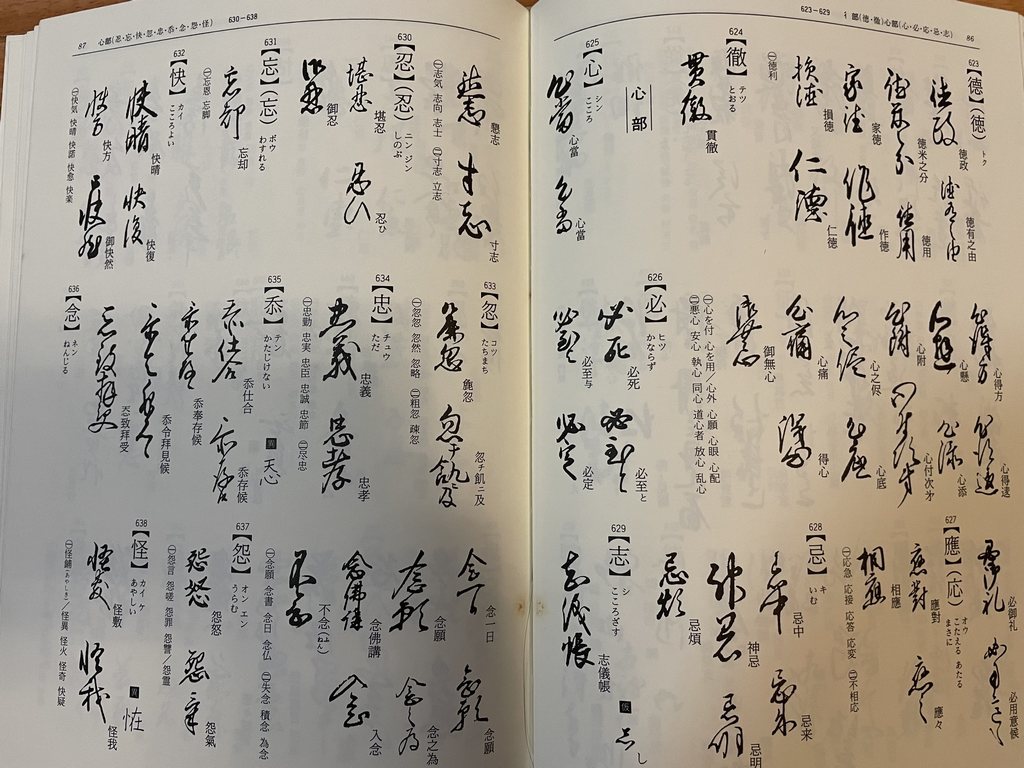 623―629 彳部(德・徹)心部(心・必・応・忌・志) 86
623
【德】(徳) トク
徳政
徳有之由
徳米之分
徳用
家徳
作徳
損徳
仁徳
㊀徳利
624
【徹】 テツ とおる
貫徹
心部
625
【心】 シン こころ
心當
心當
心得方
心得違
心懸
心添
心附
心付次㐧
心之侭
心底
心痛
得心
御無心
㊀心を付 心を用／心外 心願 心眼 心配
㊁悪心 安心 執心 同心 道心者 放心 乱心
626
【必】 ヒツ かならず
必死
必至と
必至与
必定
必御礼
必用意候
627
【應】(応) オウ こたえる あたる まさに
應對
應々
相應
㊀応急 応接 応答 応変 ㊁不相応
628
【忌】 キ いむ
忌中
忌来
神忌
忌明
忌煩
629
【志】 シ こころざす
志儀帳
仮 し
87 心部(忍・忘・快・忽・忠・忝・念・怨・怪) 630―638
懇志
寸志
㊀志気 志向 志士 ㊁寸志 立志
630
【忍】(忍) ニン ジン しのぶ
堪忍
忍ひ
御忍
631
【忘】(忘) ボウ わすれる
忘却
㊀忘恩 忘脚
632
【快】 カイ こころよい
快晴
快復
快方
御快然
㊀快気 快晴 快諾 快愈 快楽
633
【忽】 コツ たちまち
麁忽
忽チ飢ニ及
㊀忽忽 忽然 忽略 ㊁粗忽 疎忽
634
【忠】 チュウ ただ
忠義
忠孝
㊀忠勤 忠実 忠臣 忠誠 忠節 ㊁尽忠
635
【忝】 テン かたじけない
忝仕合
忝存候
忝奉存候
忝令拝見候
忝致拜受
636
【念】 ネン ねんじる
念一日
念願
念願
念之為
念佛講
入念
不念(ねん)
㊀念願 念書 念日 念仏 ㊁失念 積念 為念
637
【怨】 オン エン うらむ
怨怒
怨氣
㊀怨言 怨嗟 怨罪 怨讐／怨霊
638
【怪】 カイ ケ あやしい
怪敷
怪我
㊀怪鋪(あやしき)／怪異 怪火 怪奇 快疑